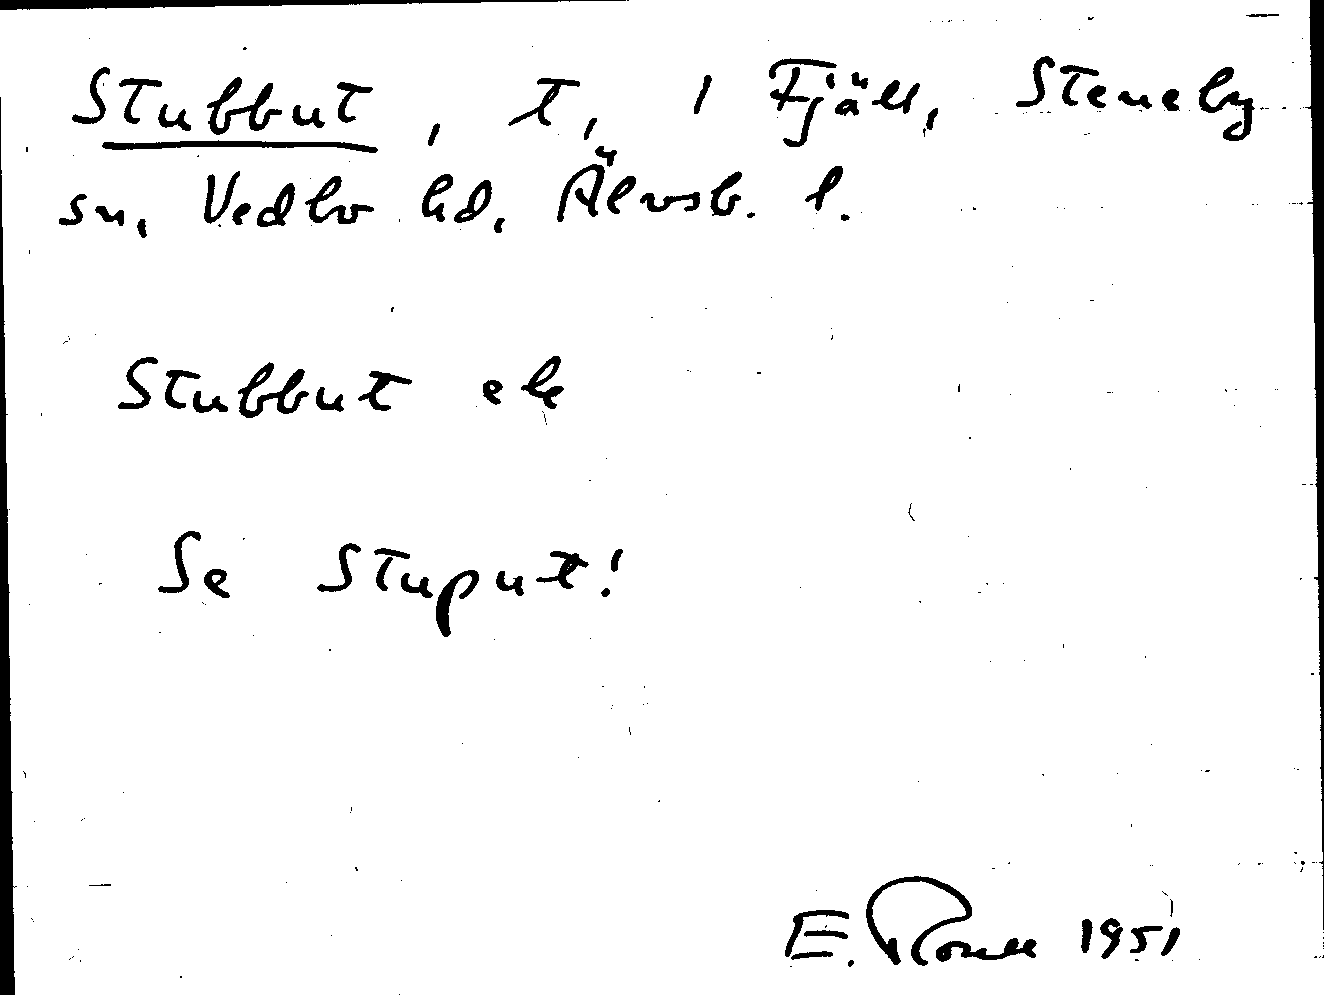 Stubbut, t, i Fjäll, Steneby
sn, Vedbo hd, Älvsb. l.
Stubbut ek
Se Stuput!
E. 1951